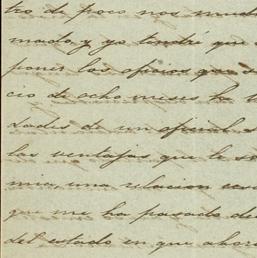 tro de poco nos mud
mado, y yo tendré que
poner los oficios que s
cio de ocho meses ha t
dades de un oficial s
las ventajas que le so
mia, una relacion
que me ha pasado de
del estado en que ahor